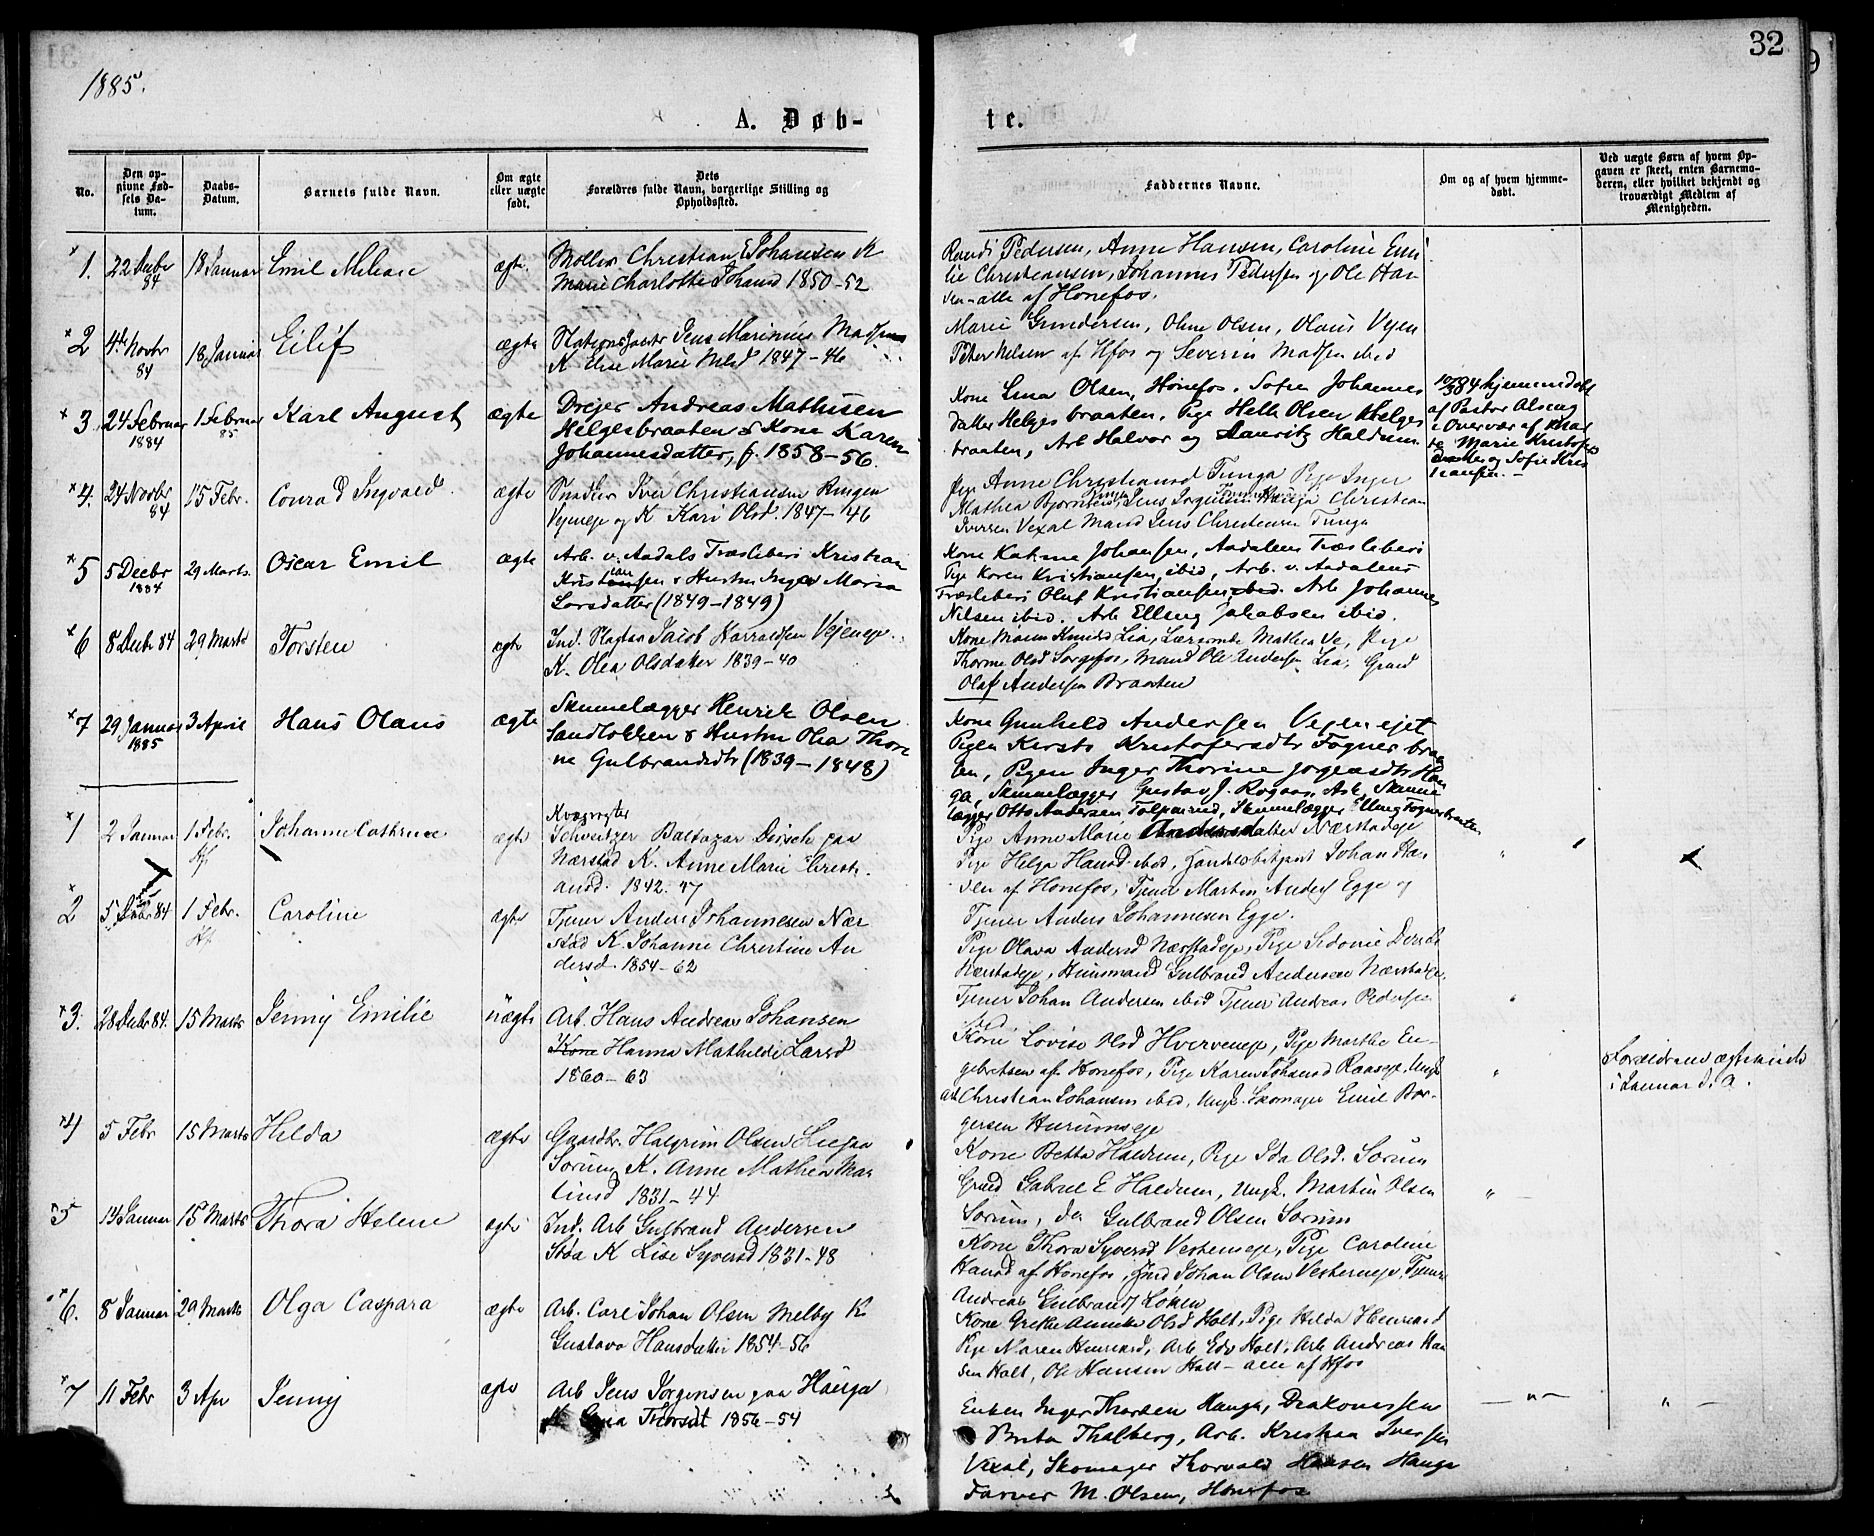 32
1885.
A. Døb-
te.
No.
Den op-
givne Fød-
sels Da-
tum.
Daabs-
Datum.
Barnets fulde Navn.
Om ægte
eller uægte
født.
Dets
Forældres fulde Navn, borgerlige Stilling og
Opholdssted.
Faddernes Navne.
Om og af hvem hjemme-
døbt.
Ved uægte Børn af hvem Op-
gaven er skeet, enten Barnemo-
deren, eller hvilket bekjendt og
troværdigt Medlem af
Menigheden.
1. 22 Decbr 84 18 Januar Emil ægte Møller Christian Johansen K
Marie Charlotte 1850-52
Randi Pedersen, Anne Hansen, Caroline Emi-
lie Christiansen, Johannes Pedersen og Ole Han
sen - alle af Hønefos.
2 4de Novbr 84 18 Januar Eilif ægte Jens Marinius Madsen
K Elise Marie 1847-46
Marie Gundersen, Oline Olsen, Olaus Vejen
Peter Nelsen af Hfos og Severin Madsen ibid
3. 24 Februar 1884 1 Februar 85 Karl August ægte Drejer Andreas Mathisen
Helgesbraaten & Kone Karen
Johannesdatter, f. 1858-56.
Kone Lina Olsen, Hønefos. Sofie Johannes
datter Helgesbraaten, Pige Helle Olsen Helges
braaten, Arb Halvor og Lauritz Haldum
84 hjemmedøbt
af Pastor Alsing
i Overvær af
Marie Kristofers
datter og Sofie Kris
tiansen. -
4. 24 Novbr 84 15 Febr. Conrad Ingvald ægte Snedker Iver Christiansen Ringen
Vejeneje og K Kari Olsd. 1847-46
Pige Anne Christiansd Tunga Pige Inger
Mathea Bjørnsen, Jens Jørgensen Hauga Christian
Iversen Vexal Mand Jens Christensen Tunga
5 5 Decbr 1884 29 Marts. Oscar Emil ægte Arb. v. Aadals Træsliberi Kristian
Kristiansen & Hustru Inger Maria
Larsdatter (1849-1849)
Kone Katrine Johansen, Aadalens Træsliberi
Pige Karen Kristiansen, ibid, Arb. v. Aadalens
Træsliberi Oluf Kristiansen, ibid. Arb Johannes
Nilsen ibid. Arb Elling Jakobsen ibid.
6 8 Decbr 84 29 Marts Torsten ægte Ind. Slagter Jacob Harraldsen Vejeneje
K. Olea Olsdatter 1839-40
Kone Maren Knudsd Lia, Mathea Ve, Pige
Thorine Olsd Sorgefos, Mand Ole Andersen Lia, Gmd
Olaf Andersen Braaten
7 29 Januar 1885 3 April Hans Olaus ægte Skinnelægger Henrik Olsen
Sandløkken & Hustru Olea Thori
ne Gulbrandsdtr (1839-1848)
Kone Gunhild Andersen Vejeneiet
Pigen Kirsti Kristofersdtr Fogner bra
ten, Pigen Inger Thorine Jørgensdtr Hau
ga, Skinnelægger Gustav J. Rogaas, Arb. Skinne
lægger Otto Andersen Tolpinrud, Skinnelægger Elling Fognerbraaten
1 2 Januar 1 Febr. Johanne Cathrine ægte Kvægrøgter
Schveitzer Baltazar Dirsch paa
Nærstad K. Anne Marie Christi-
ansd. 1842. 47
Pige Anne Marie Andersdatter Nærstadeje
Pige Helga Hansd. ibid, Handelsbetjent Johan Ha-
sen af Hønefos, Tjener Martin Anders Egge og
Tjener Anders Johannesen Egge.
2 5 84 1 Febr. Caroline ægte Tjener Anders Johannesen Nær
stad K. Johanne Christine An
dersd. 1854-62
Pige Olava Andersd Nærstadeje, Pige Sidonie Dirsch
Nærstadeje, Huusmand Gulbrand Andersen Nærstadeje,
Tjener Johan Andersen ibid Tjener Andreas Pedersen
ibid
3. 28 Decbr 84. 15 Marts Jenny Emilie uægte Arb. Hans Andreas Johansen
Kone Hanna Mathilde Larsd
1860-63
Kone Lovise Olsd Hverveneje, Pige Marthe En-
gebretsen af Hønefos, Pige Karen Johansd Raaseje, Ungk
Arb Christian Johansen ibid, Ungk. Skomager Emil Bør-
gersen Hurumseje
Forældrene ægteviede
i Januar d. A.
4) 5 Febr 15 Marts Hilda ægte Gaardbr. Halgrim Olsen Lie paa
Sørum K. Anne Mathea Mar
tinsd 1831-44
Kone Betta Haldum, Pige Ida Olsd. Sørum
Gmd Gabriel E Haldum, Ungk. Martin Olsen
Sørum, do Gulbrand Olsen Sørum
5 14 Januar 15 Marts Thora Helene ægte Ind. Arb Gulbrand Andersen
Støa K Lise Syversd 1831-48
Kone Thora Syversd Vesterneje, Pige Caroline
Hansd af Hønefos, Gmd Johan Olsen Vesterneje, Tjener
Andreas Gulbrands Løken
6. 8 Januar 29 Marts Olga Caspara ægte Arb. Carl Johan Olsen Melby K
Gustava Hansdatter 1854-56
Kone Grethe Annette Olsd Holt, Pige Hilda Henriksd
Pige Maren Henriksd, Arb Edv Holt, Arb Andreas Han
sen Holt, Ole Hansen Holt - alle af Hfos
7 11 Febr 3 Apr Jenny ægte Arb Jens Jørgensen paa Hauga
K Thorsdt 1856-54
Enken Inger Thorsen Hauga, Diakonissen
Berta Thalberg, Arb. Kristian Iversen
Vexal, Skomager Thorvald Hansen Hauga
Farver M. Olsen, Hønefos